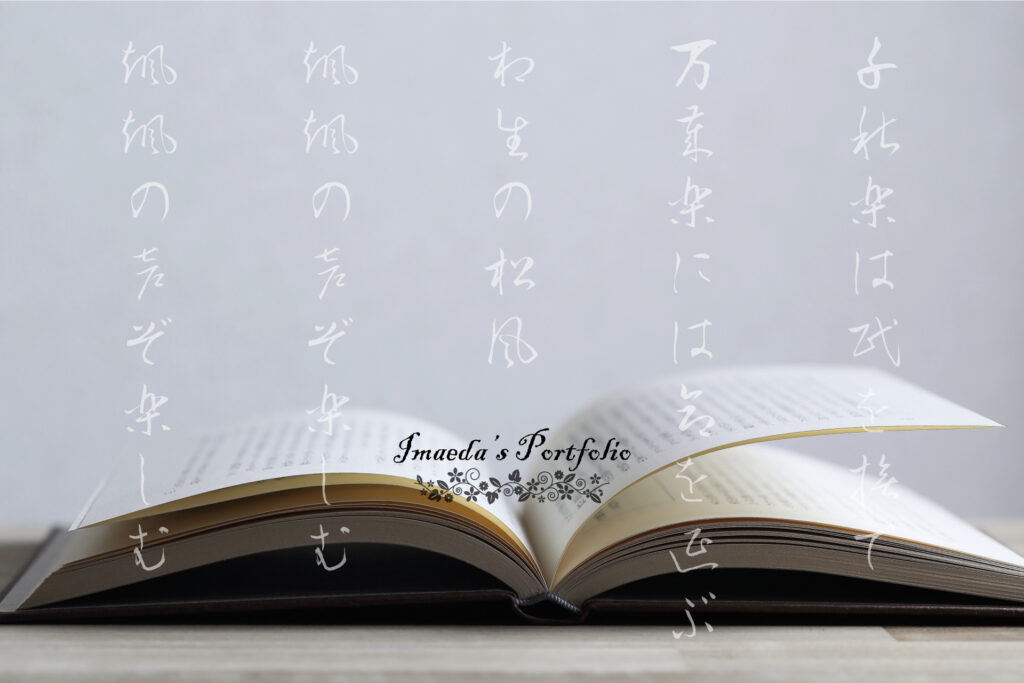 千秋楽は民を撫て
万歳楽には命を延ぶ
相生の松風
颯颯の声ぞ楽しむ
颯颯の声ぞ楽しむ
Imaeda's Portfolio